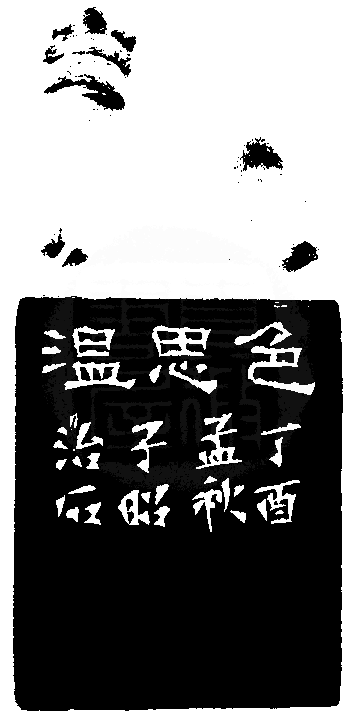 色思温
丁酉
孟秋
子昭
治石